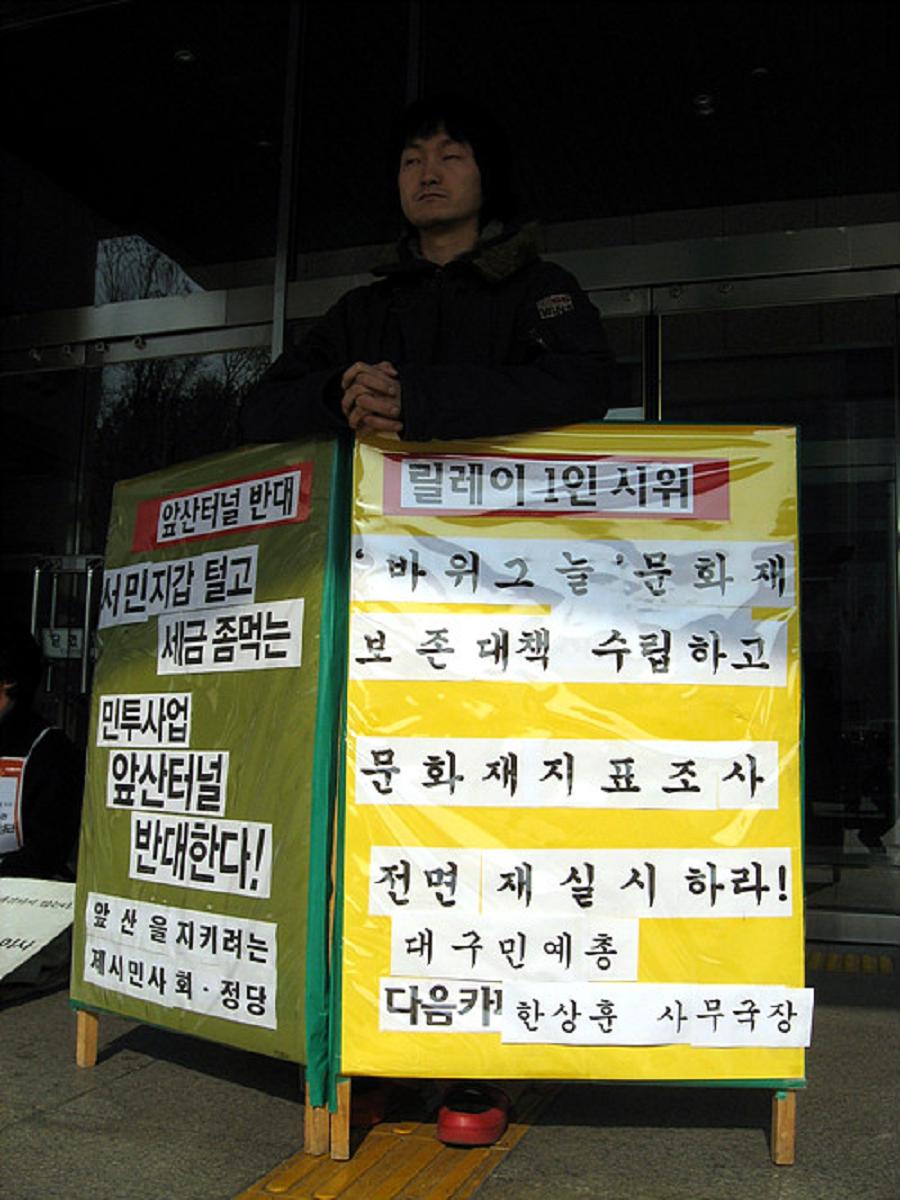 앞산터널 반대
서민지갑 털고
세금 좀먹는
민투사업
앞산터널
반대한다!
앞산을지키려는
제시민사회·정당
릴레이 1인 시위
‘바위그늘’문화재
보존대책 수립하고
문화재지표조사
전면 재실시하라!
대구민예총
다음카
한상훈 사무국장